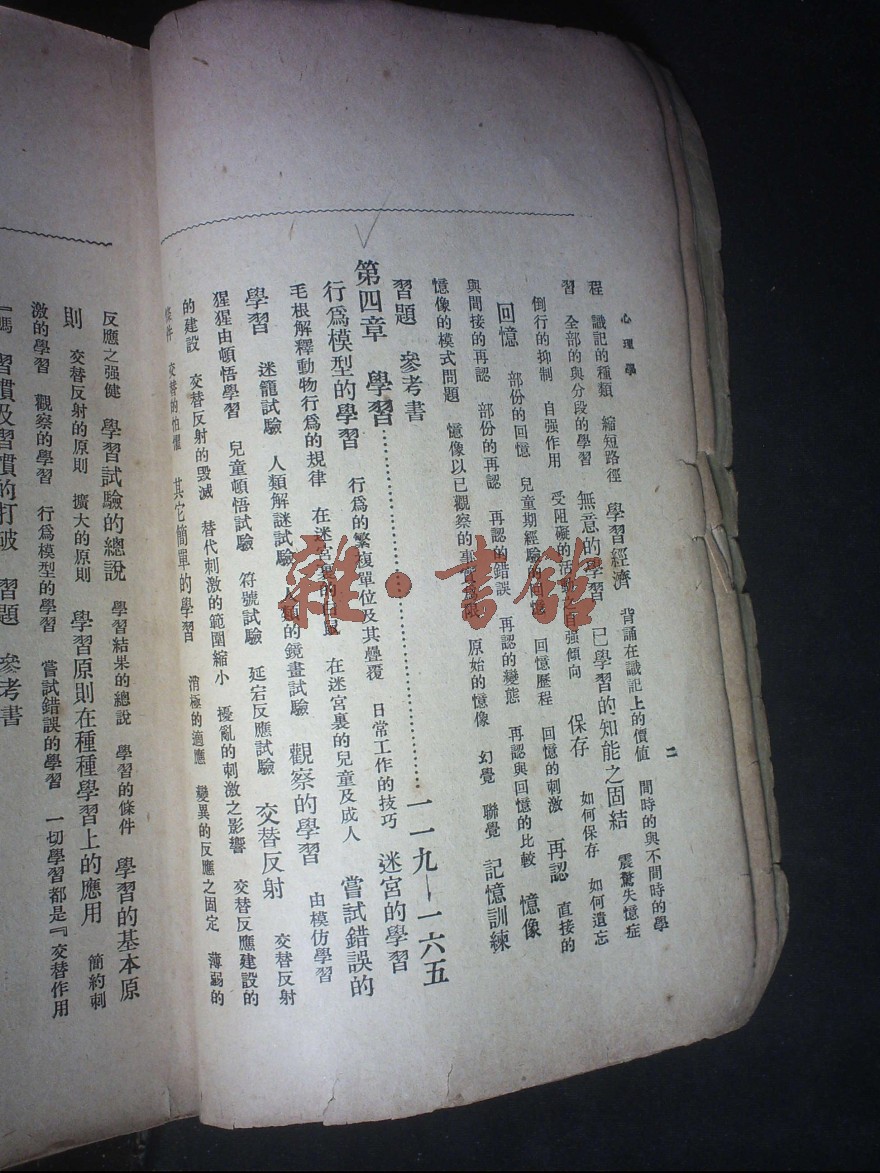 心理學
二
程　識記的種類　縮短路徑　學習經濟　背誦在識記上的價值　間時的與不間時的學
習　全部的與分段的學習　無意的學習　已學習的知能之固結　震驚失憶症
倒行的抑制　自强作用　受阻礙的活動之自强傾向　保存　如何保存　如何遺忘
回憶　部份的回憶　兒童期經驗的回憶　回憶歷程　回憶的刺激　再認　直接的
與間接的再認　部份的再認　再認的錯誤　再認的變態　再認與回憶的比較　憶像
憶像的模式問題　憶像以已觀察的事實爲限　原始的憶像　幻覺　聯覺　記憶訓練
習題　參考書
第四章　學習……………………一一九—一六五
行爲模型的學習　行爲的繁複單位及其疊覆　日常工作的技巧　迷宮的學習
毛根解釋動物行爲的規律　在迷宮裏的白鼠　在迷宮裏的兒童及成人　嘗試錯誤的
學習　迷籠試驗　人類解謎試驗　人類的鏡畫試驗　觀察的學習　由模仿學習
猩猩由頓悟學習　兒童頓悟試驗　符號試驗　延宕反應試驗　交替反射　交替反射
的建設　交替反射的毀滅　替代刺激的範圍縮小　擾亂的刺激之影響　交替反應建設的
條件　交替的怕懼　其它簡單的學習　消極的適應　變異的反應之固定　薄弱的
反應之强健　學習試驗的總說　學習結果的總說　學習的條件　學習的基本原
則　交替反射的原則　擴大的原則　學習原則在種種學習上的應用　簡約刺
激的學習　觀察的學習　行爲模型的學習　嘗試錯誤的學習　一切學習都是『交替作用
』嗎　習慣及習慣的打破　習題　參考書
雜·書館